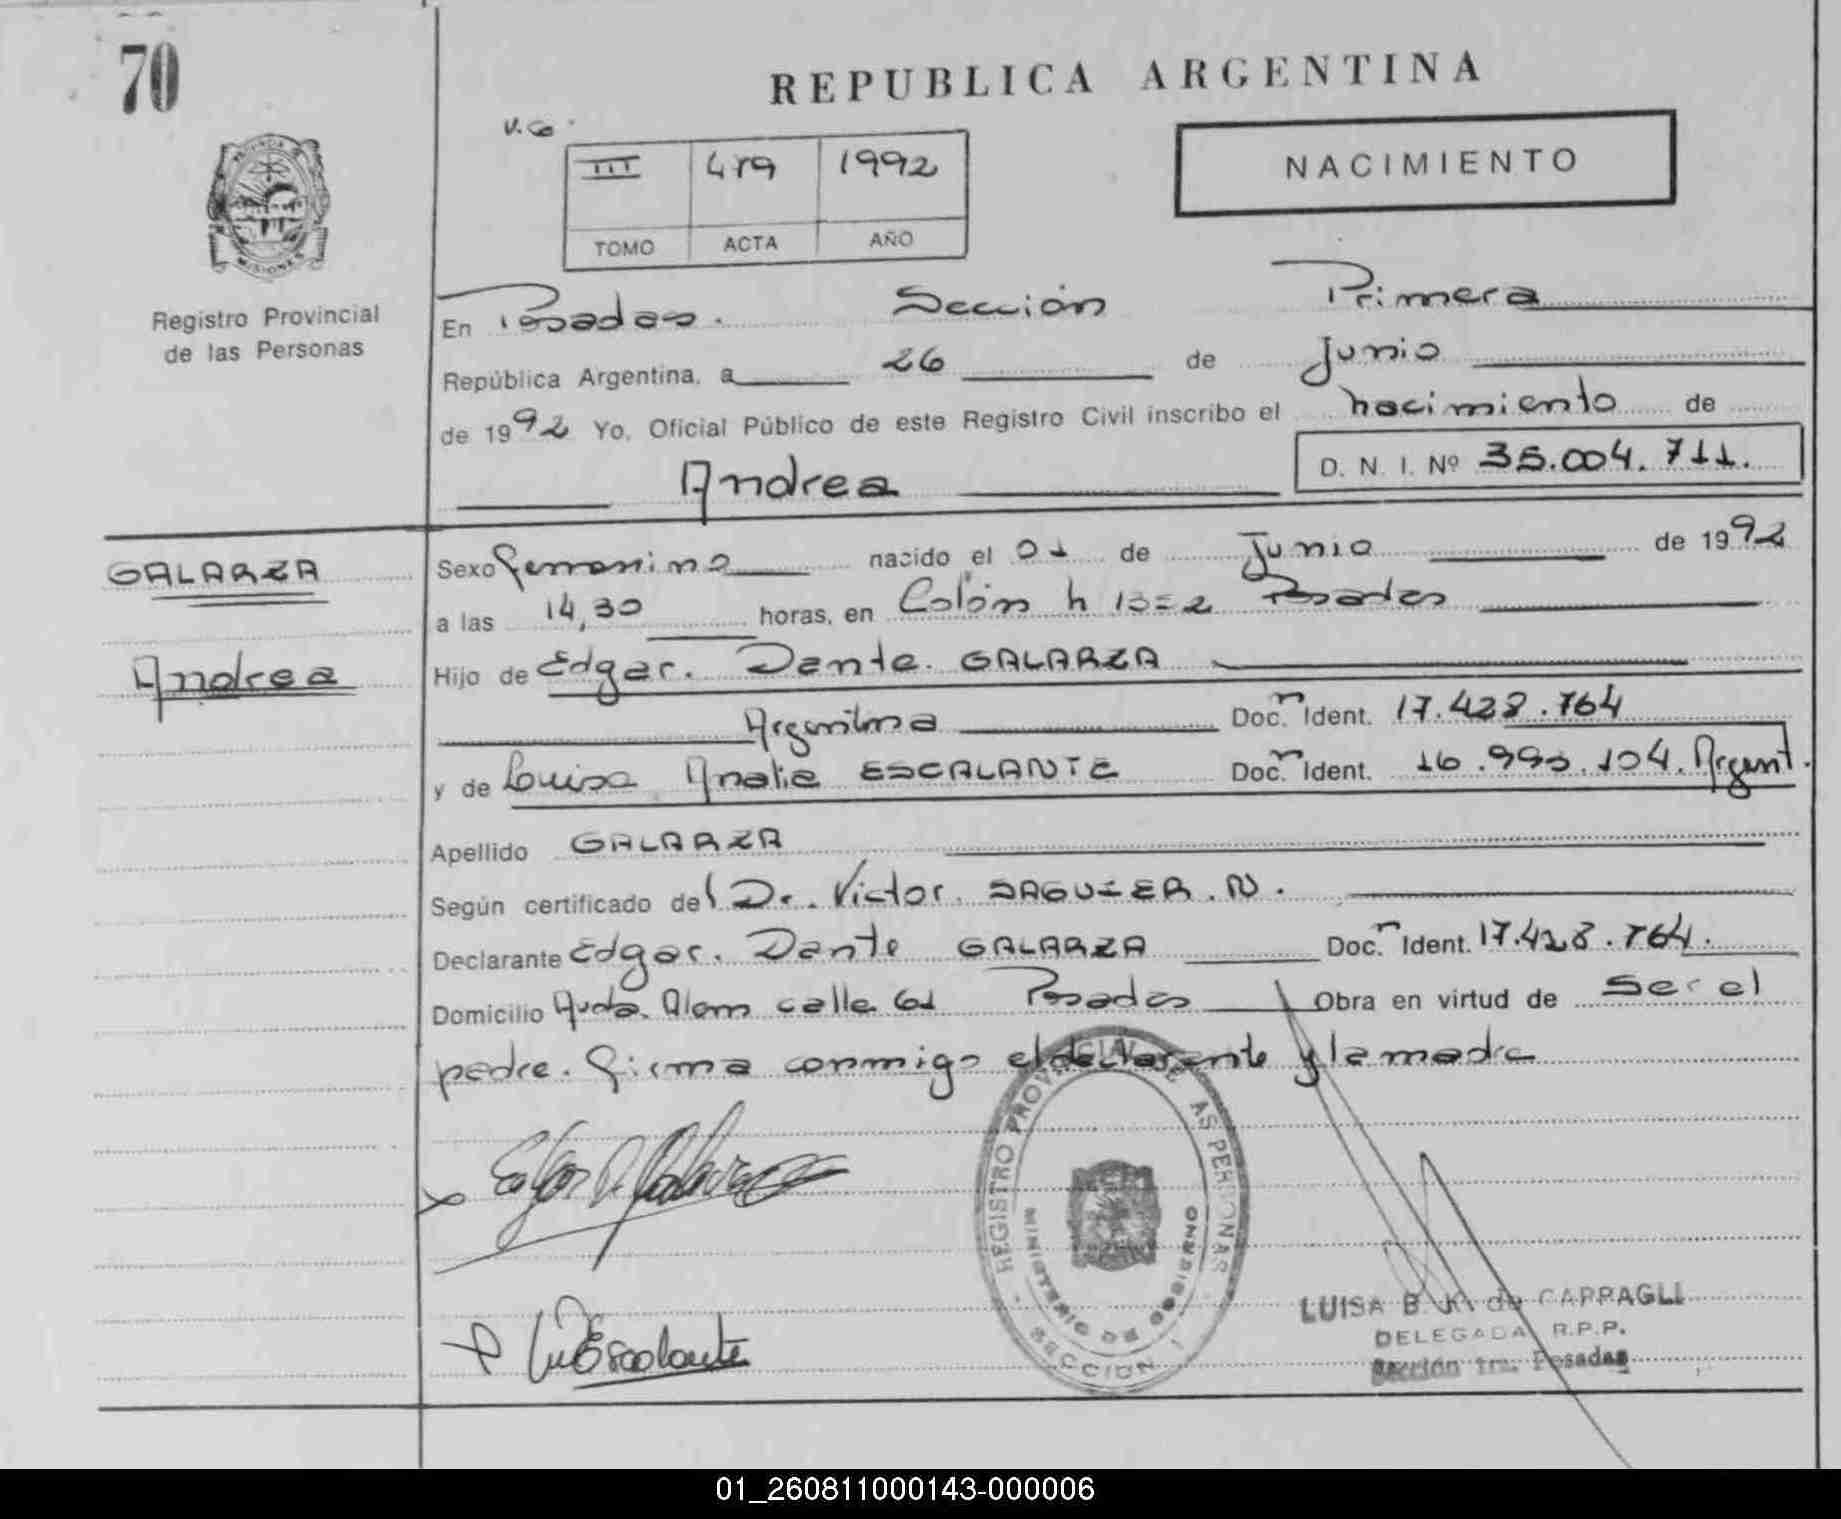 70
REPUBLICA ARGENTINA
NACIMIENTO
III 479 1992
TOMO ACTA AÑO
PROVINCIA DE MISIONES
Registro Provincial
de las Personas
En Posadas. Sección Primera
República Argentina, a 26 de Junio
de 1992 Yo, Oficial Público de este Registro Civil inscribo el nacimiento de
Andrea D. N. I. Nº 35.004.711.
GALARZA
Andrea
Sexo femenino nacido el 01 de Junio de 1992
a las 14,30 horas, en Colón Posadas
Hijo de Edgar. Dante. GALARZA
Argentina Doc. Ident. 17.428.764
y de Luisa Analia ESCALANTE Doc. Ident. 16.993.104. Argent.
Apellido GALARZA
Según certificado del Dr. Victor. SAGUIER. N.
Declarante Edgar. Dante GALARZA Doc. Ident. 17.428.764.
Domicilio Avda. Alem calle 61 Posadas Obra en virtud de Ser el
padre. Firma conmigo el declarante y la madre
REGISTRO PROVINCIAL DE LAS PERSONAS
MINISTERIO DE GOBIERNO
SECCION 1
Escalante
LUISA B. K. de CAPPAGLI
DELEGADA R.P.P.
Sección 1ra. Posadas
01_260811000143-000006